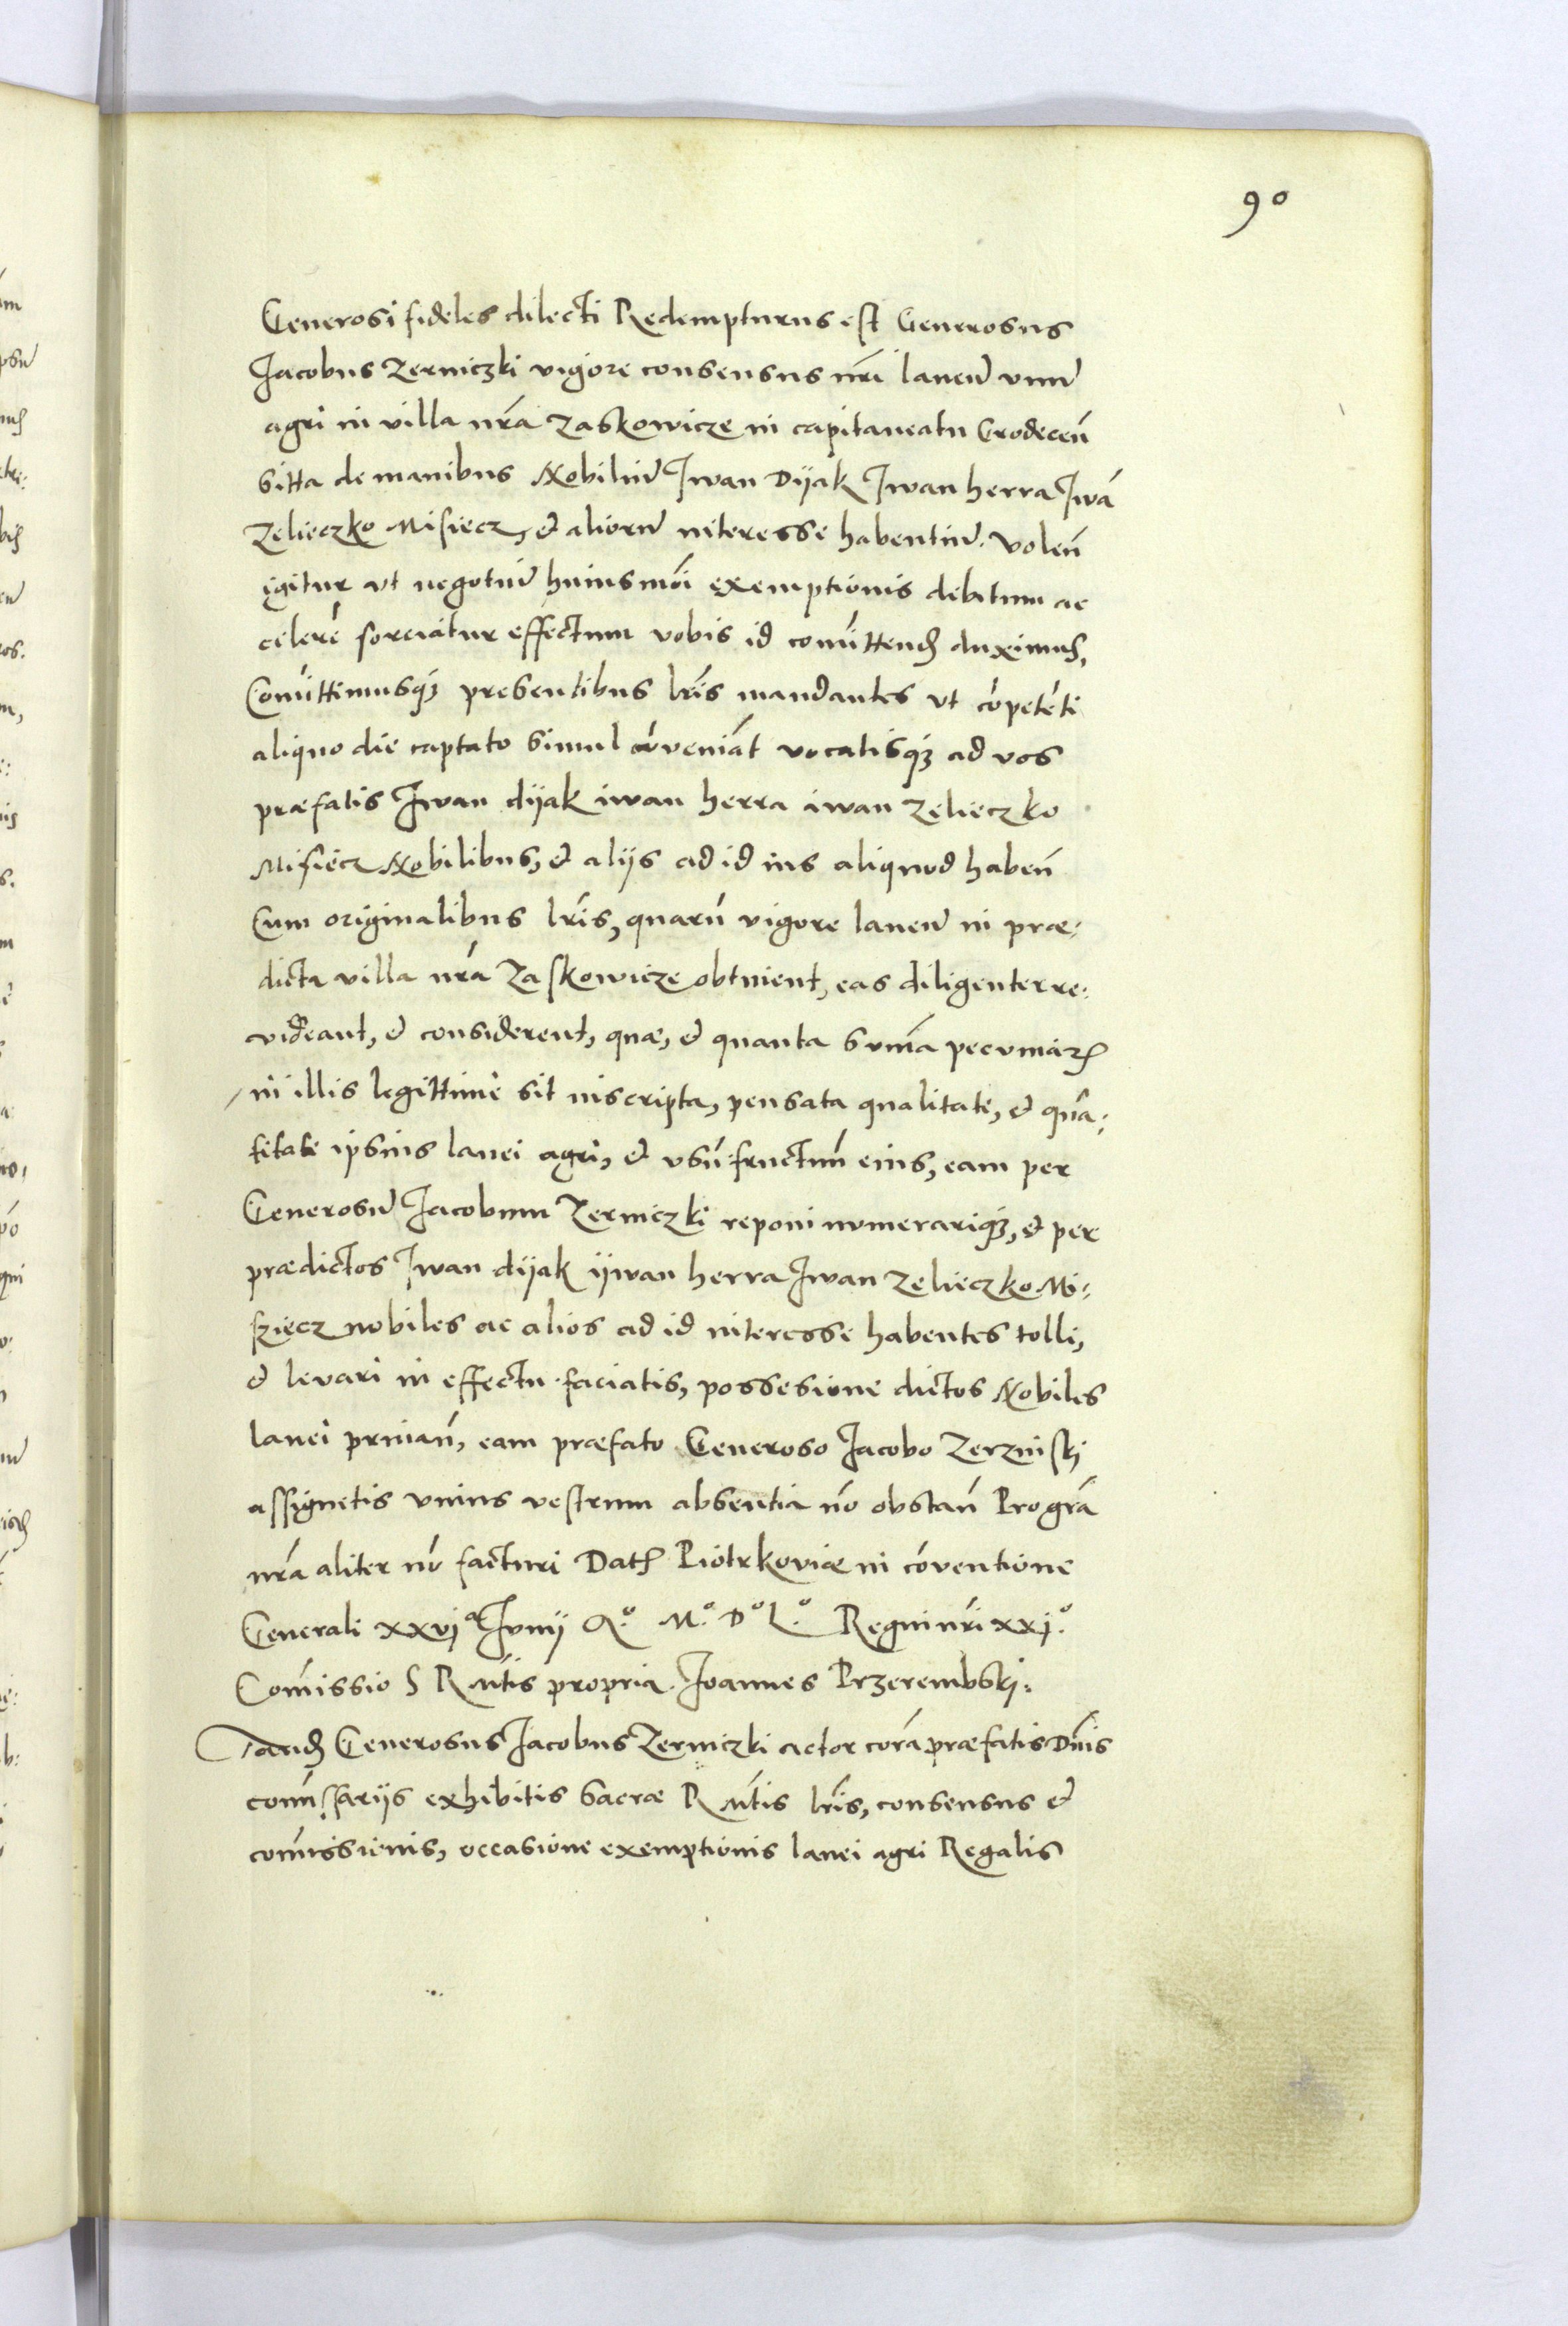 90
Generosi fideles dilecti Redempturus est Generosus
Jacobus Zerniczki vigore consensus nr̃i laneũ vnũ
agri in villa nr̃a Zaskowicze in capitaneatu Grodeceñ
sitta de manibus Nobiliũ Jwan Dijak Jwan herra Jwã
Zelieczko Misiecz, et aliorũ interesse habentiũ. Voleñ
igitur vt negotiũ huiusmõi exemptionis debitum ac
celerẽ sorciatur effectum vobis id com̃ittend̃ duximus,
Com̃ittimusq₃ presentibus lr̃is mandantes vt cõpetẽti
aliquo die captato simul cõveniãt vocatisq₃ ad vos
præfatis Jwan dijak iwan herra iwan Zelieczko
Misiecz Nobilibus, et alijs ad id ius aliquod habeñ
Cum originalibus lr̃is, quarũ vigore laneũ in præ-
dicta villa nr̃a Zaskowicze obtinent, eas diligenter re-
videant, et considerent, quæ, et quanta sum̃a pecuniarꝝ
in illis legittime sit inscripta, pensata qualitate, et quã-
titate ipsius lanei agri, et vsũ fructum eius, eam per
Generosũ Jacobum Zerniczki reponi numerariq₃, et per
prædictos Jwan dijak ijwan herra Jwan Zelieczko Mi-
sziecz nobiles ac alios ad id interesse habentes tolli,
et levari in effectu faciatis, possesione dictos Nobiles
lanei priuañ, eam præfato Generoso Jacobo Zerzniski
assignetis vnius vestrum absentia nõ obstañ Progrã
nr̃a aliter nõ facturi Dat̃ Piotrkoviæ in cõventione
Generali xxvjª Junij A.º M.º Dº L.º Regni nr̃i xxj.º
Com̃issio S R M̃tis propria Joannes Przerembski.
Tand̃ Generosus Jacobus Zerniczki actor corã præfatis Dñis
com̃issarijs exhibitis Sacræ R M̃tis lr̃is, consensus et
com̃issienis, occasione exemptionis lanei agri Regalis